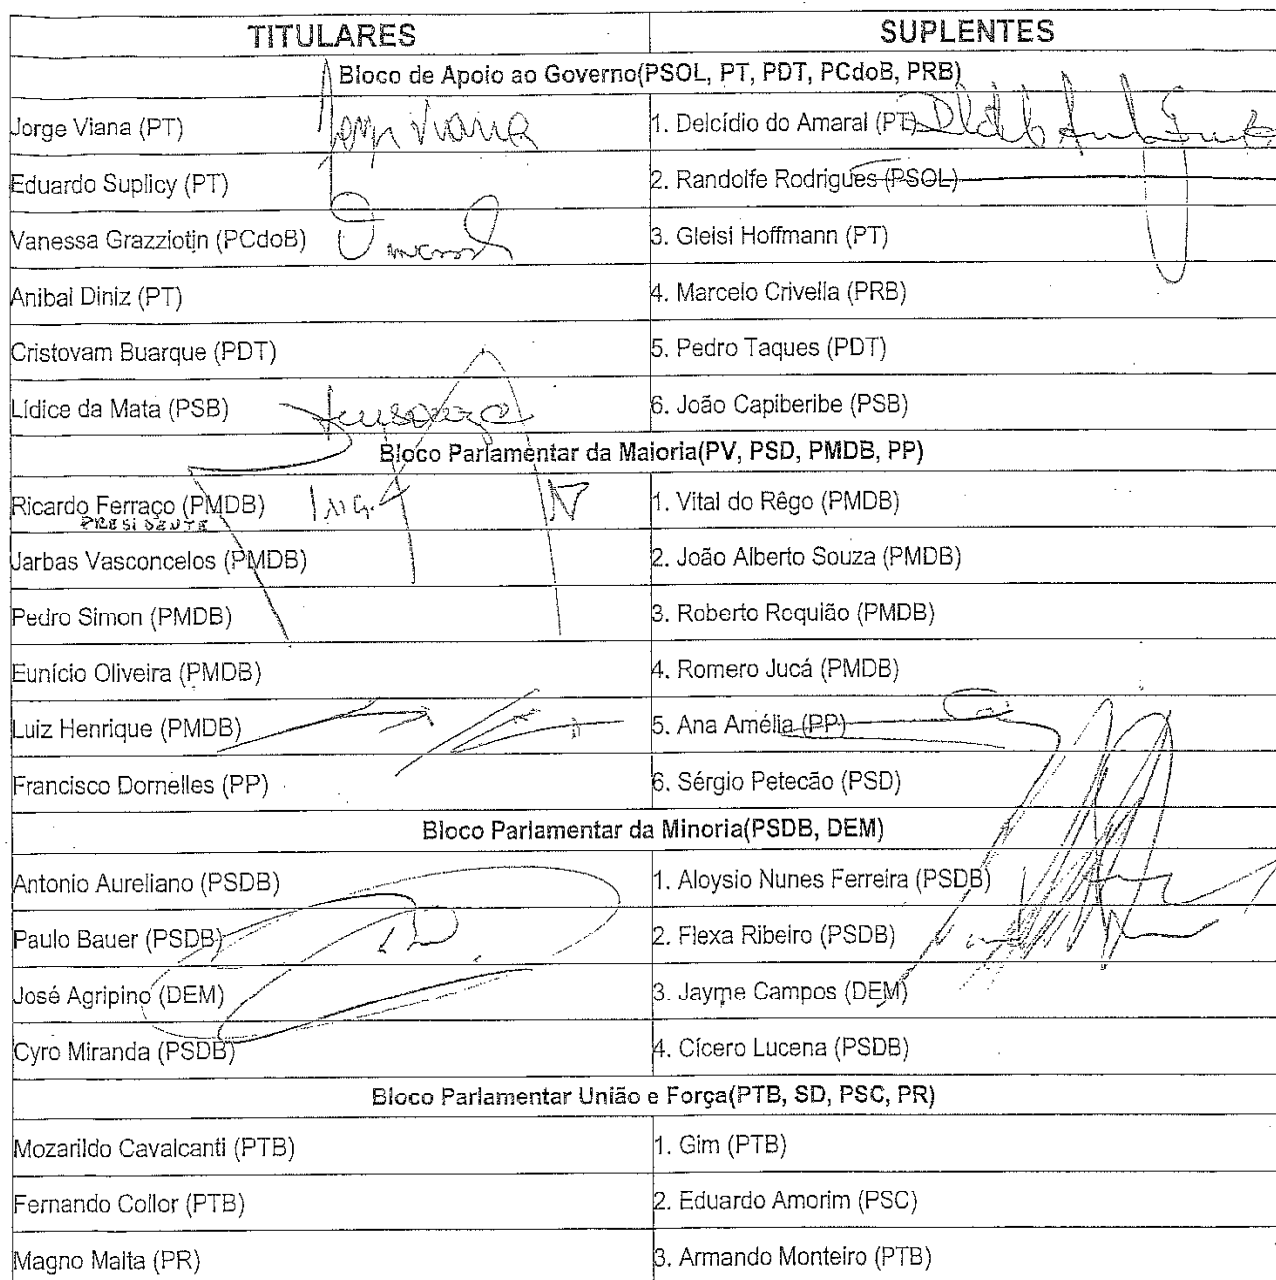 TITULARES SUPLENTES
Bloco de Apoio ao Governo(PSOL, PT, PDT, PCdoB, PRB)
Jorge Viana (PT) Jorge Viana 1. Delcídio do Amaral (PT)
Eduardo Suplicy (PT) 2. Randolfe Rodrigues (PSOL)
Vanessa Grazziotin (PCdoB) 3. Gleisi Hoffmann (PT)
Anibal Diniz (PT) 4. Marcelo Crivella (PRB)
Cristovam Buarque (PDT) 5. Pedro Taques (PDT)
Lídice da Mata (PSB) 6. João Capiberibe (PSB)
Bloco Parlamentar da Maioria(PV, PSD, PMDB, PP)
Ricardo Ferraço (PMDB) 1. Vital do Rêgo (PMDB)
PRESIDENTE
Jarbas Vasconcelos (PMDB) 2. João Alberto Souza (PMDB)
Pedro Simon (PMDB) 3. Roberto Requião (PMDB)
Eunício Oliveira (PMDB) 4. Romero Jucá (PMDB)
Luiz Henrique (PMDB) 5. Ana Amélia (PP)
Francisco Dornelles (PP) 6. Sérgio Petecão (PSD)
Bloco Parlamentar da Minoria(PSDB, DEM)
Antonio Aureliano (PSDB) 1. Aloysio Nunes Ferreira (PSDB)
Paulo Bauer (PSDB) 2. Flexa Ribeiro (PSDB)
José Agripino (DEM) 3. Jayme Campos (DEM)
Cyro Miranda (PSDB) 4. Cícero Lucena (PSDB)
Bloco Parlamentar União e Força(PTB, SD, PSC, PR)
Mozarildo Cavalcanti (PTB) 1. Gim (PTB)
Fernando Collor (PTB) 2. Eduardo Amorim (PSC)
Magno Malta (PR) 3. Armando Monteiro (PTB)